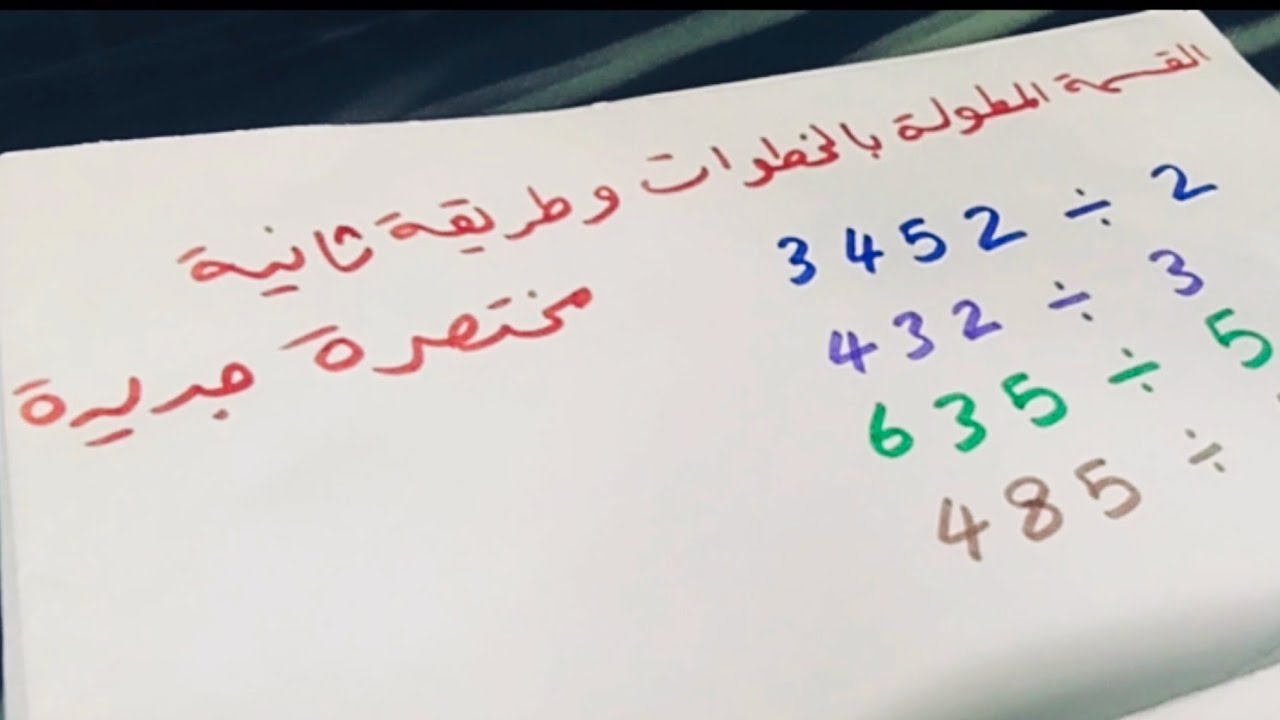 القسمة المطولة بالخطوات وطريقة ثانية
مختصرة جديدة
3452 ÷ 2
432 ÷ 3
635 ÷ 5
485 ÷